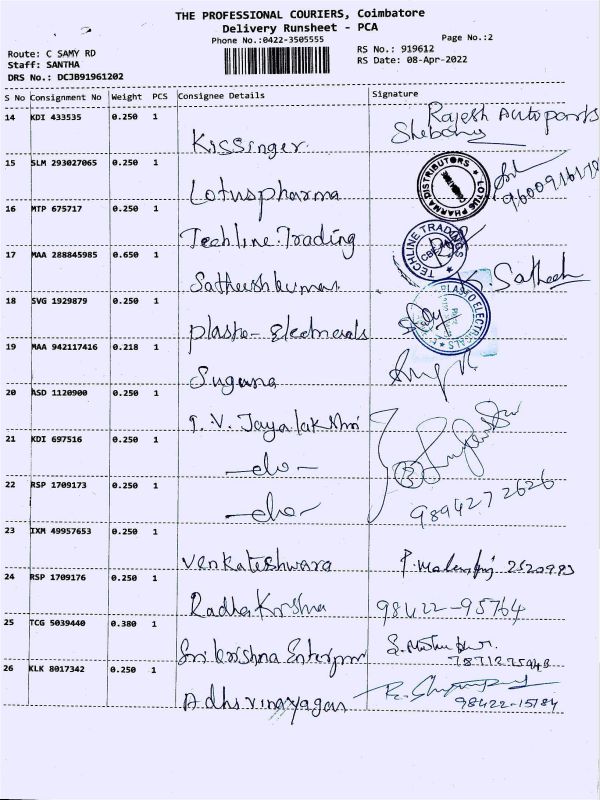 THE PROFESSIONAL COURIERS, Coimbatore
Delivery Runsheet - PCA
Phone No.:0422-3505555
Page No.:2
Route: C SAMY RD
RS No.: 919612
Staff: SANTHA
RS Date: 08-Apr-2022
DRS No.: DCJB91961202
S No Consignment No Weight PCS Consignee Details Signature
14 KDI 433535 0.250 1
Rajesh Autoparts
Kissinger
15 SLM 293027065 0.250 1
Lotuspharma
LOTUS PHARMA DISTRIBUTORS
16 MTP 675717 0.250 1
Techline.Trading
TECHLINE TRADINGS
17 MAA 288845985 0.650 1
Satheeshkumar
Satheesh
18 SVG 1929879 0.250 1
Plasto-Electricals
PLASTO ELECTRICALS
19 MAA 942117416 0.218 1
Suguna
20 ASD 1120900 0.250 1
T.V. Jayalakshmi
21 KDI 697516 0.250 1
-do-
22 RSP 1709173 0.250 1
-do-
9894272626
23 IXM 49957653 0.250 1
Venkateshwara
24 RSP 1709176 0.250 1
Radha Krishna 98422-95764
25 TCG 5039440 0.380 1
Sri krishna Enterprises
26 KLK 8017342 0.250 1
Adhi vinayagar 98422-15184